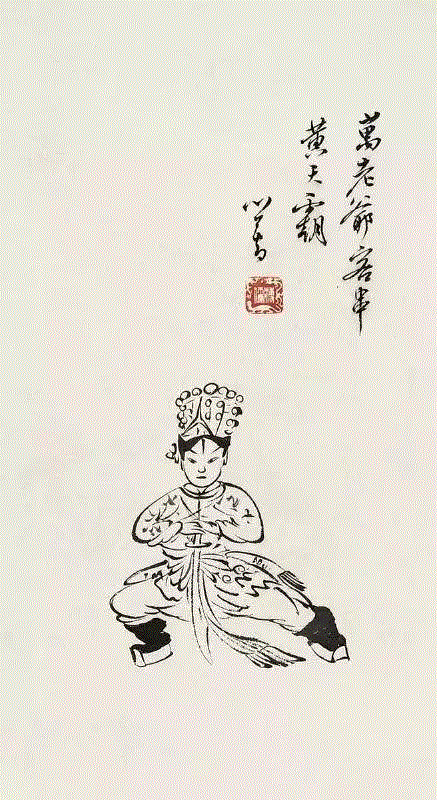 萬老爺客串
黃天霸
心畬